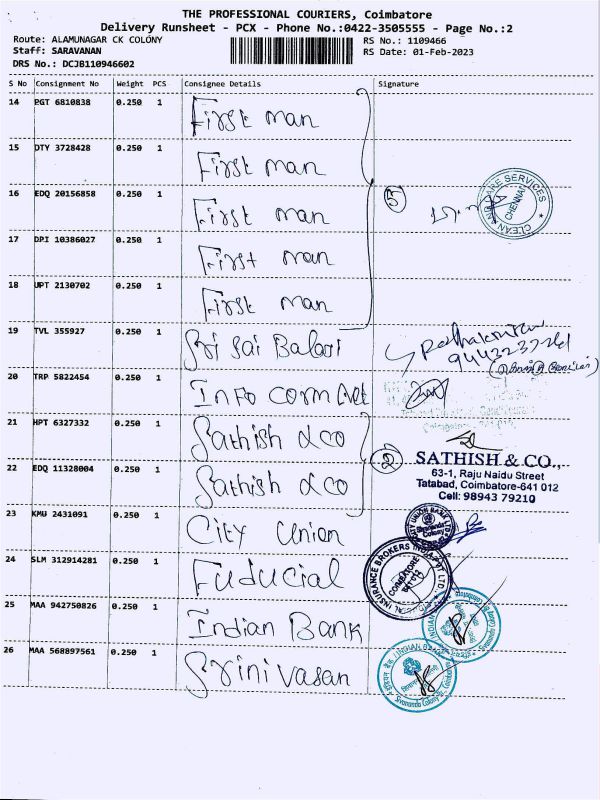 THE PROFESSIONAL COURIERS, Coimbatore
Delivery Runsheet - PCX - Phone No.:0422-3505555 - Page No.:2
Route: ALAMUNAGAR CK COLONY
RS No.: 1109466
Staff: SARAVANAN
RS Date: 01-Feb-2023
DRS No.: DCJB110946602
S No Consignment No Weight PCS Consignee Details Signature
14 PGT 6810838 0.250 1 First man
15 DTY 3728428 0.250 1 First man
16 EDQ 20156858 0.250 1 First man
5
CLEAN AND CARE SERVICES CHENNAI
17 DPI 10386027 0.250 1 First man
18 UPT 2130702 0.250 1 First man
19 TVL 355927 0.250 1 Sri Sai Balaji
20 TRP 5822454 0.250 1 Info com Net
21 HPT 6327332 0.250 1 Sathish & co
22 EDQ 11328004 0.250 1 Sathish & co
2
SATHISH & CO.,
63-1, Raju Naidu Street
Tatabad, Coimbatore-641 012
Cell: 98943 79210
23 KMU 2431091 0.250 1 City Union
CITY UNION BANK
Sivananda Colony
24 SLM 312914281 0.250 1 Fuducial
INSURANCE BROKERS INDIA PVT LTD
COIMBATORE
641 012
25 MAA 942750826 0.250 1 Indian Bank
26 MAA 568897561 0.250 1 Srinivasan
INDIAN BANK
Sivananda Colony